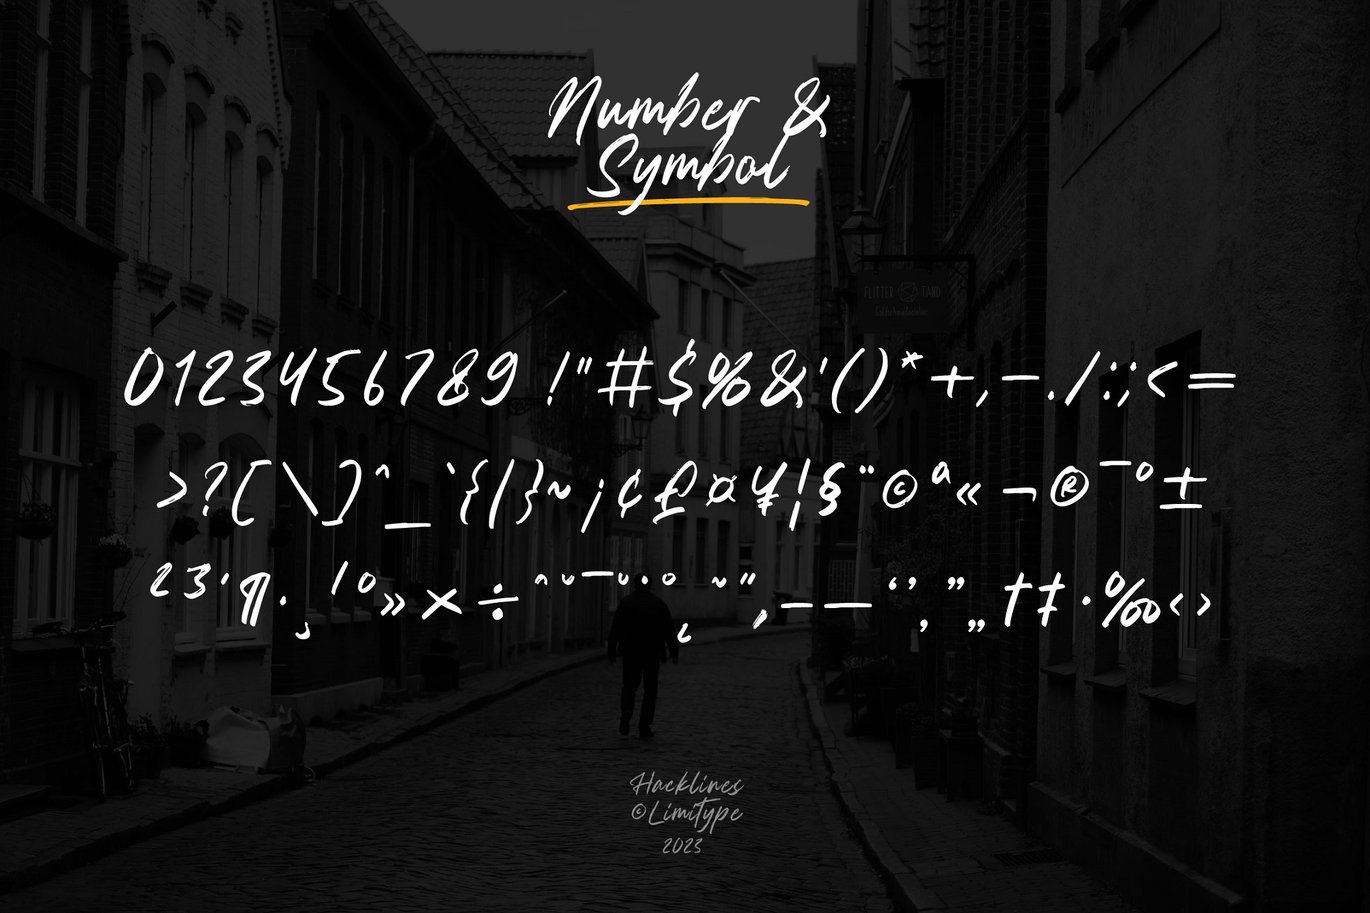 Number &
Symbol
FLITTER TAND
Goldschmiedeatelier
0123456789 !"#$%&'()*+,-./:;<=
>?[\]^_`{|}~¡¢£¤¥¦§¨©ª«¬®¯°±
²³´¶·¸¹º»×÷ˆˇˉ˘˙˚˛˜˝‚–—‘’‚”„†‡•‰‹›
Hacklines
©Limitype
2023